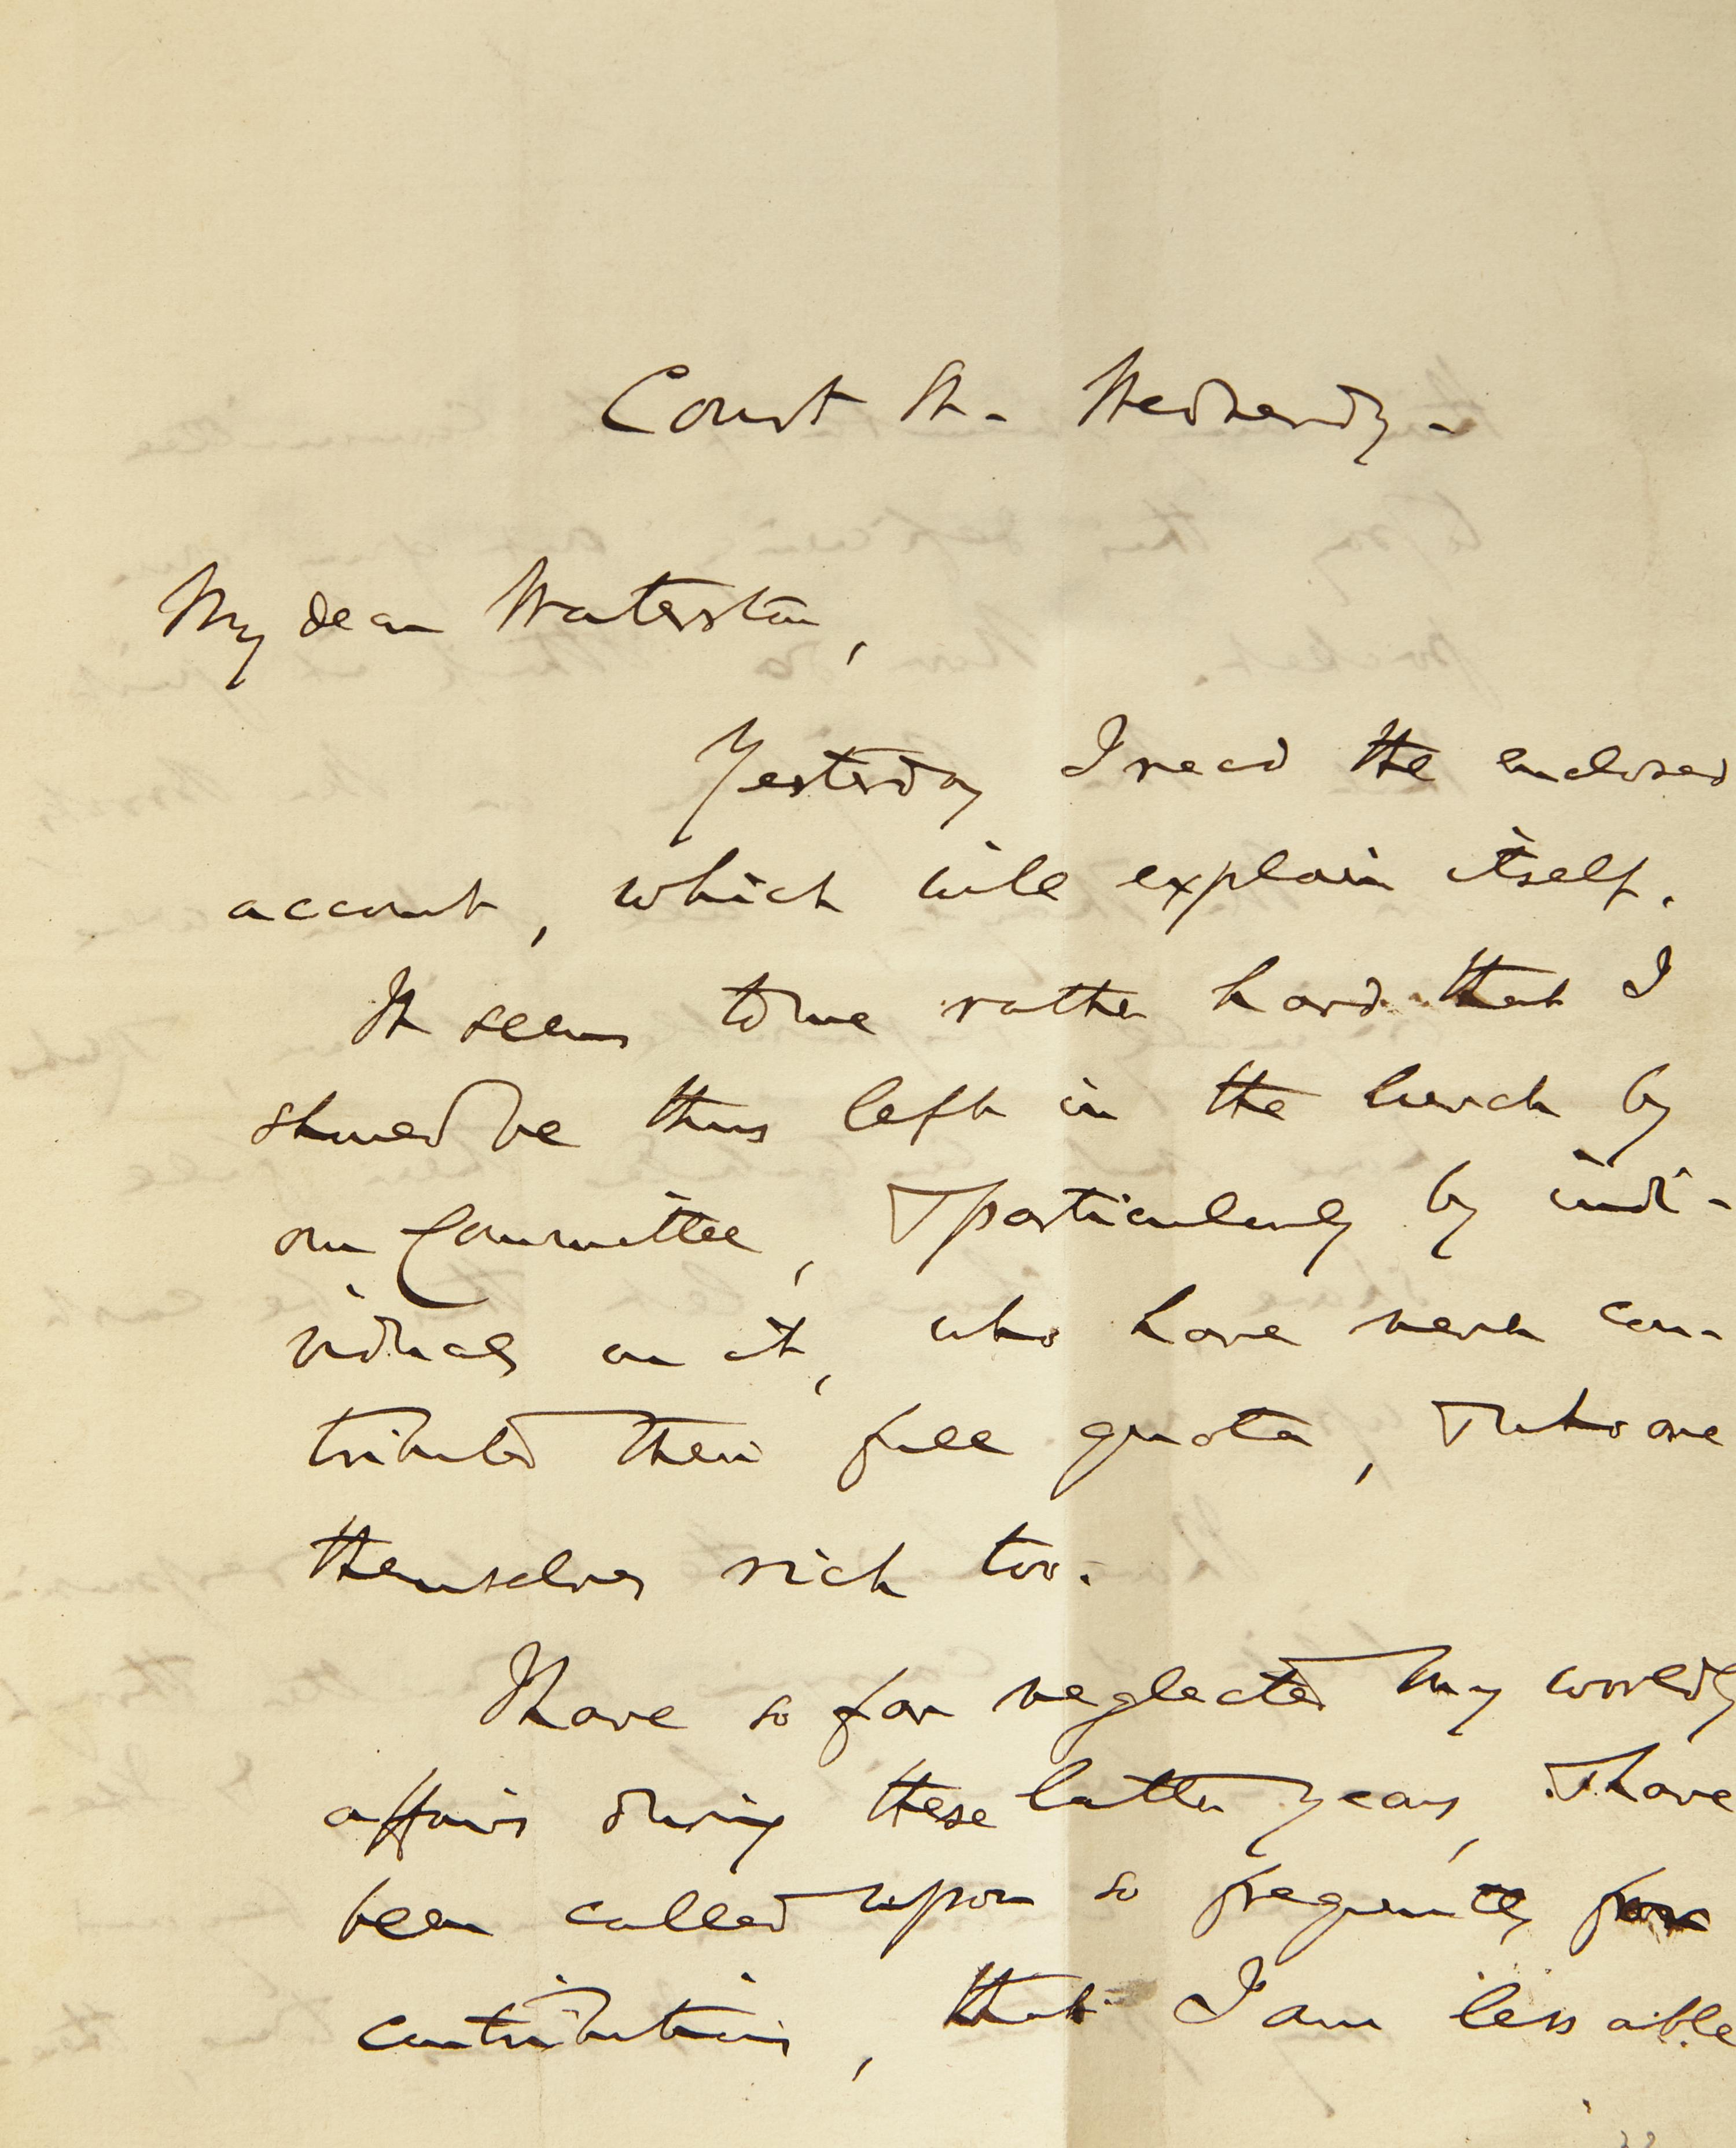 Court St. Wednesday -
My dear Waterston,
Yesterday I recd the enclosed
account, which will explain itself.
It seems to me rather hard that I
should be thus left in the lurch by
our Committee, & particularly by indi-
viduals on it, who have never con-
tributed their full quota, & who are
themselves rich too.
I have so far neglected my worldly
affairs during these latter years, & have
been called upon so frequently for
contributions, that I am less able